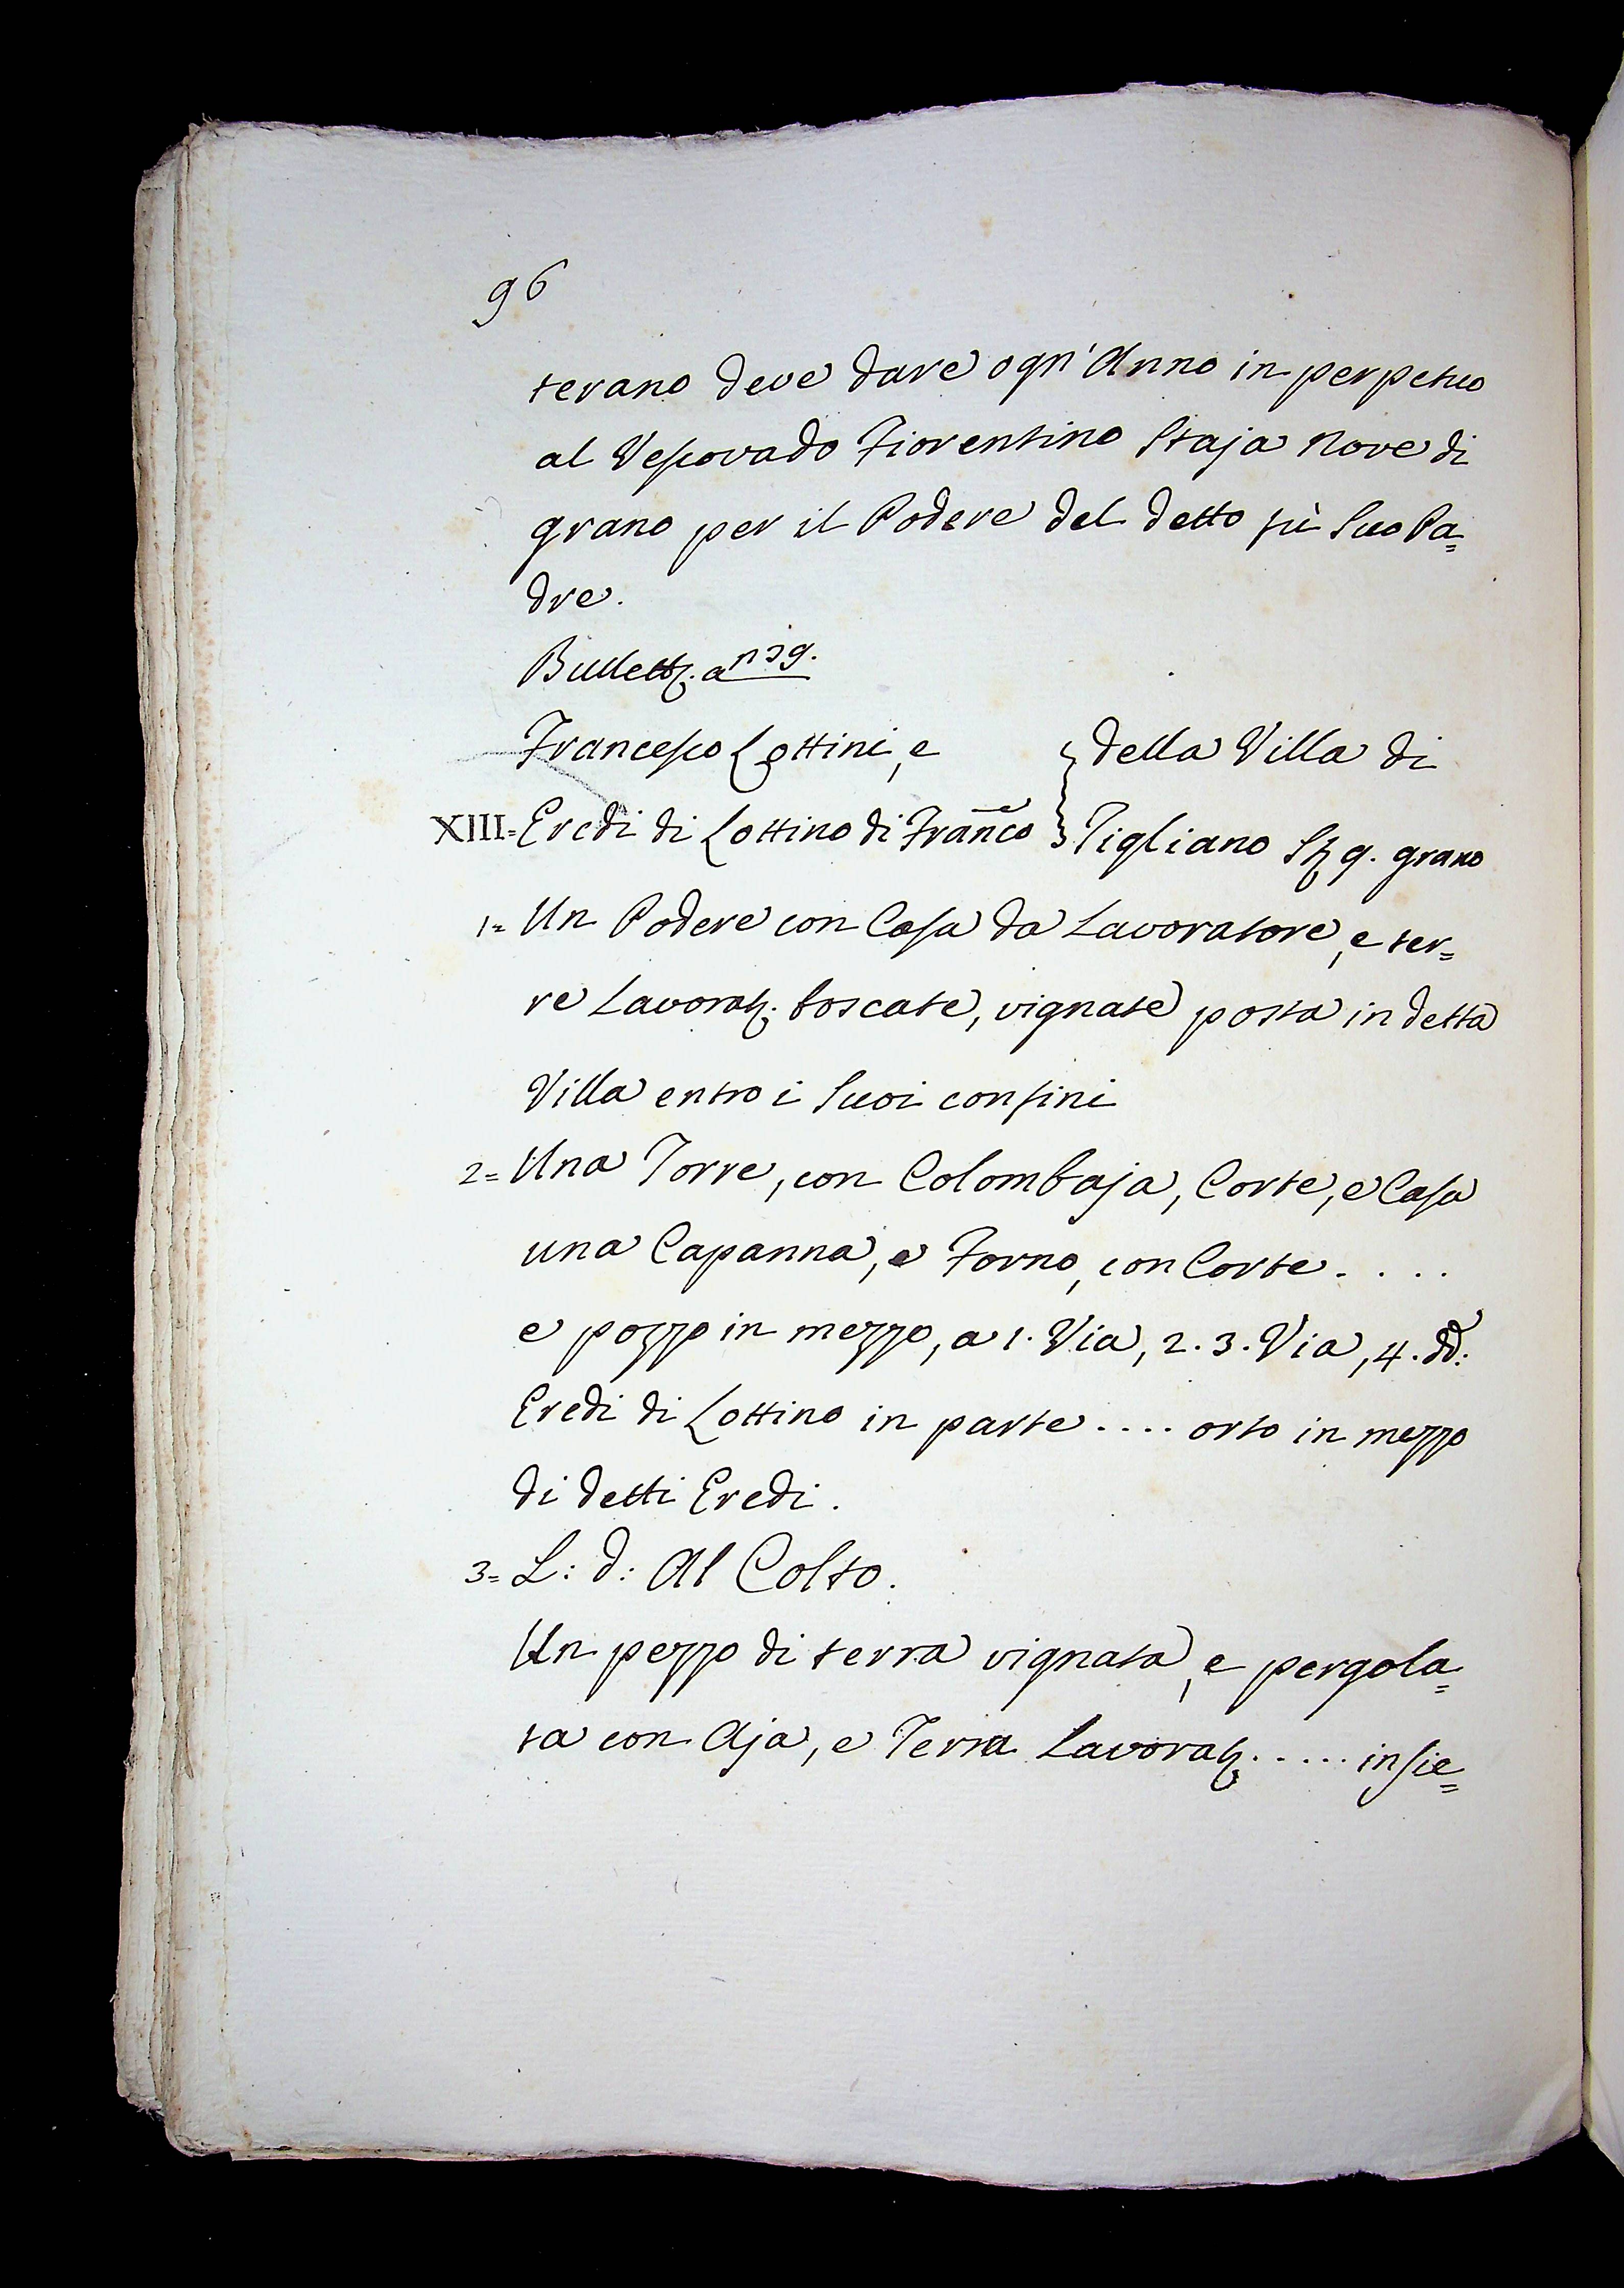 96
terano deve dare ogn'Anno in perpetuo
al Vescovado Fiorentino Staja nove di
grano per il Podere del detto fù Suo Pa=
dre.
Bullett. a 119.
Francesco Lottini, e } della Villa di
XIII= Eredi di Lottino di Franco } Tigliano St. 9. grano
1= Un Podere con Casa da Lavoratore, e ter=
re Lavorat. boscate, vignate posta in detta
Villa entro i Suoi confini
2= Una Torre, con Colombaja, Corte, e Casa
una Capanna, e Forno, con Corte . . . .
e pozzo in mezzo, a 1. Via, 2. 3. Via, 4. dd:
Eredi di Lottino in parte .... orto in mezzo
di detti Eredi.
3= L: d: Al Colto.
Un pezzo di terra vignata, e pergola=
ta con Aja, e Terra Lavorat. ..... insie=